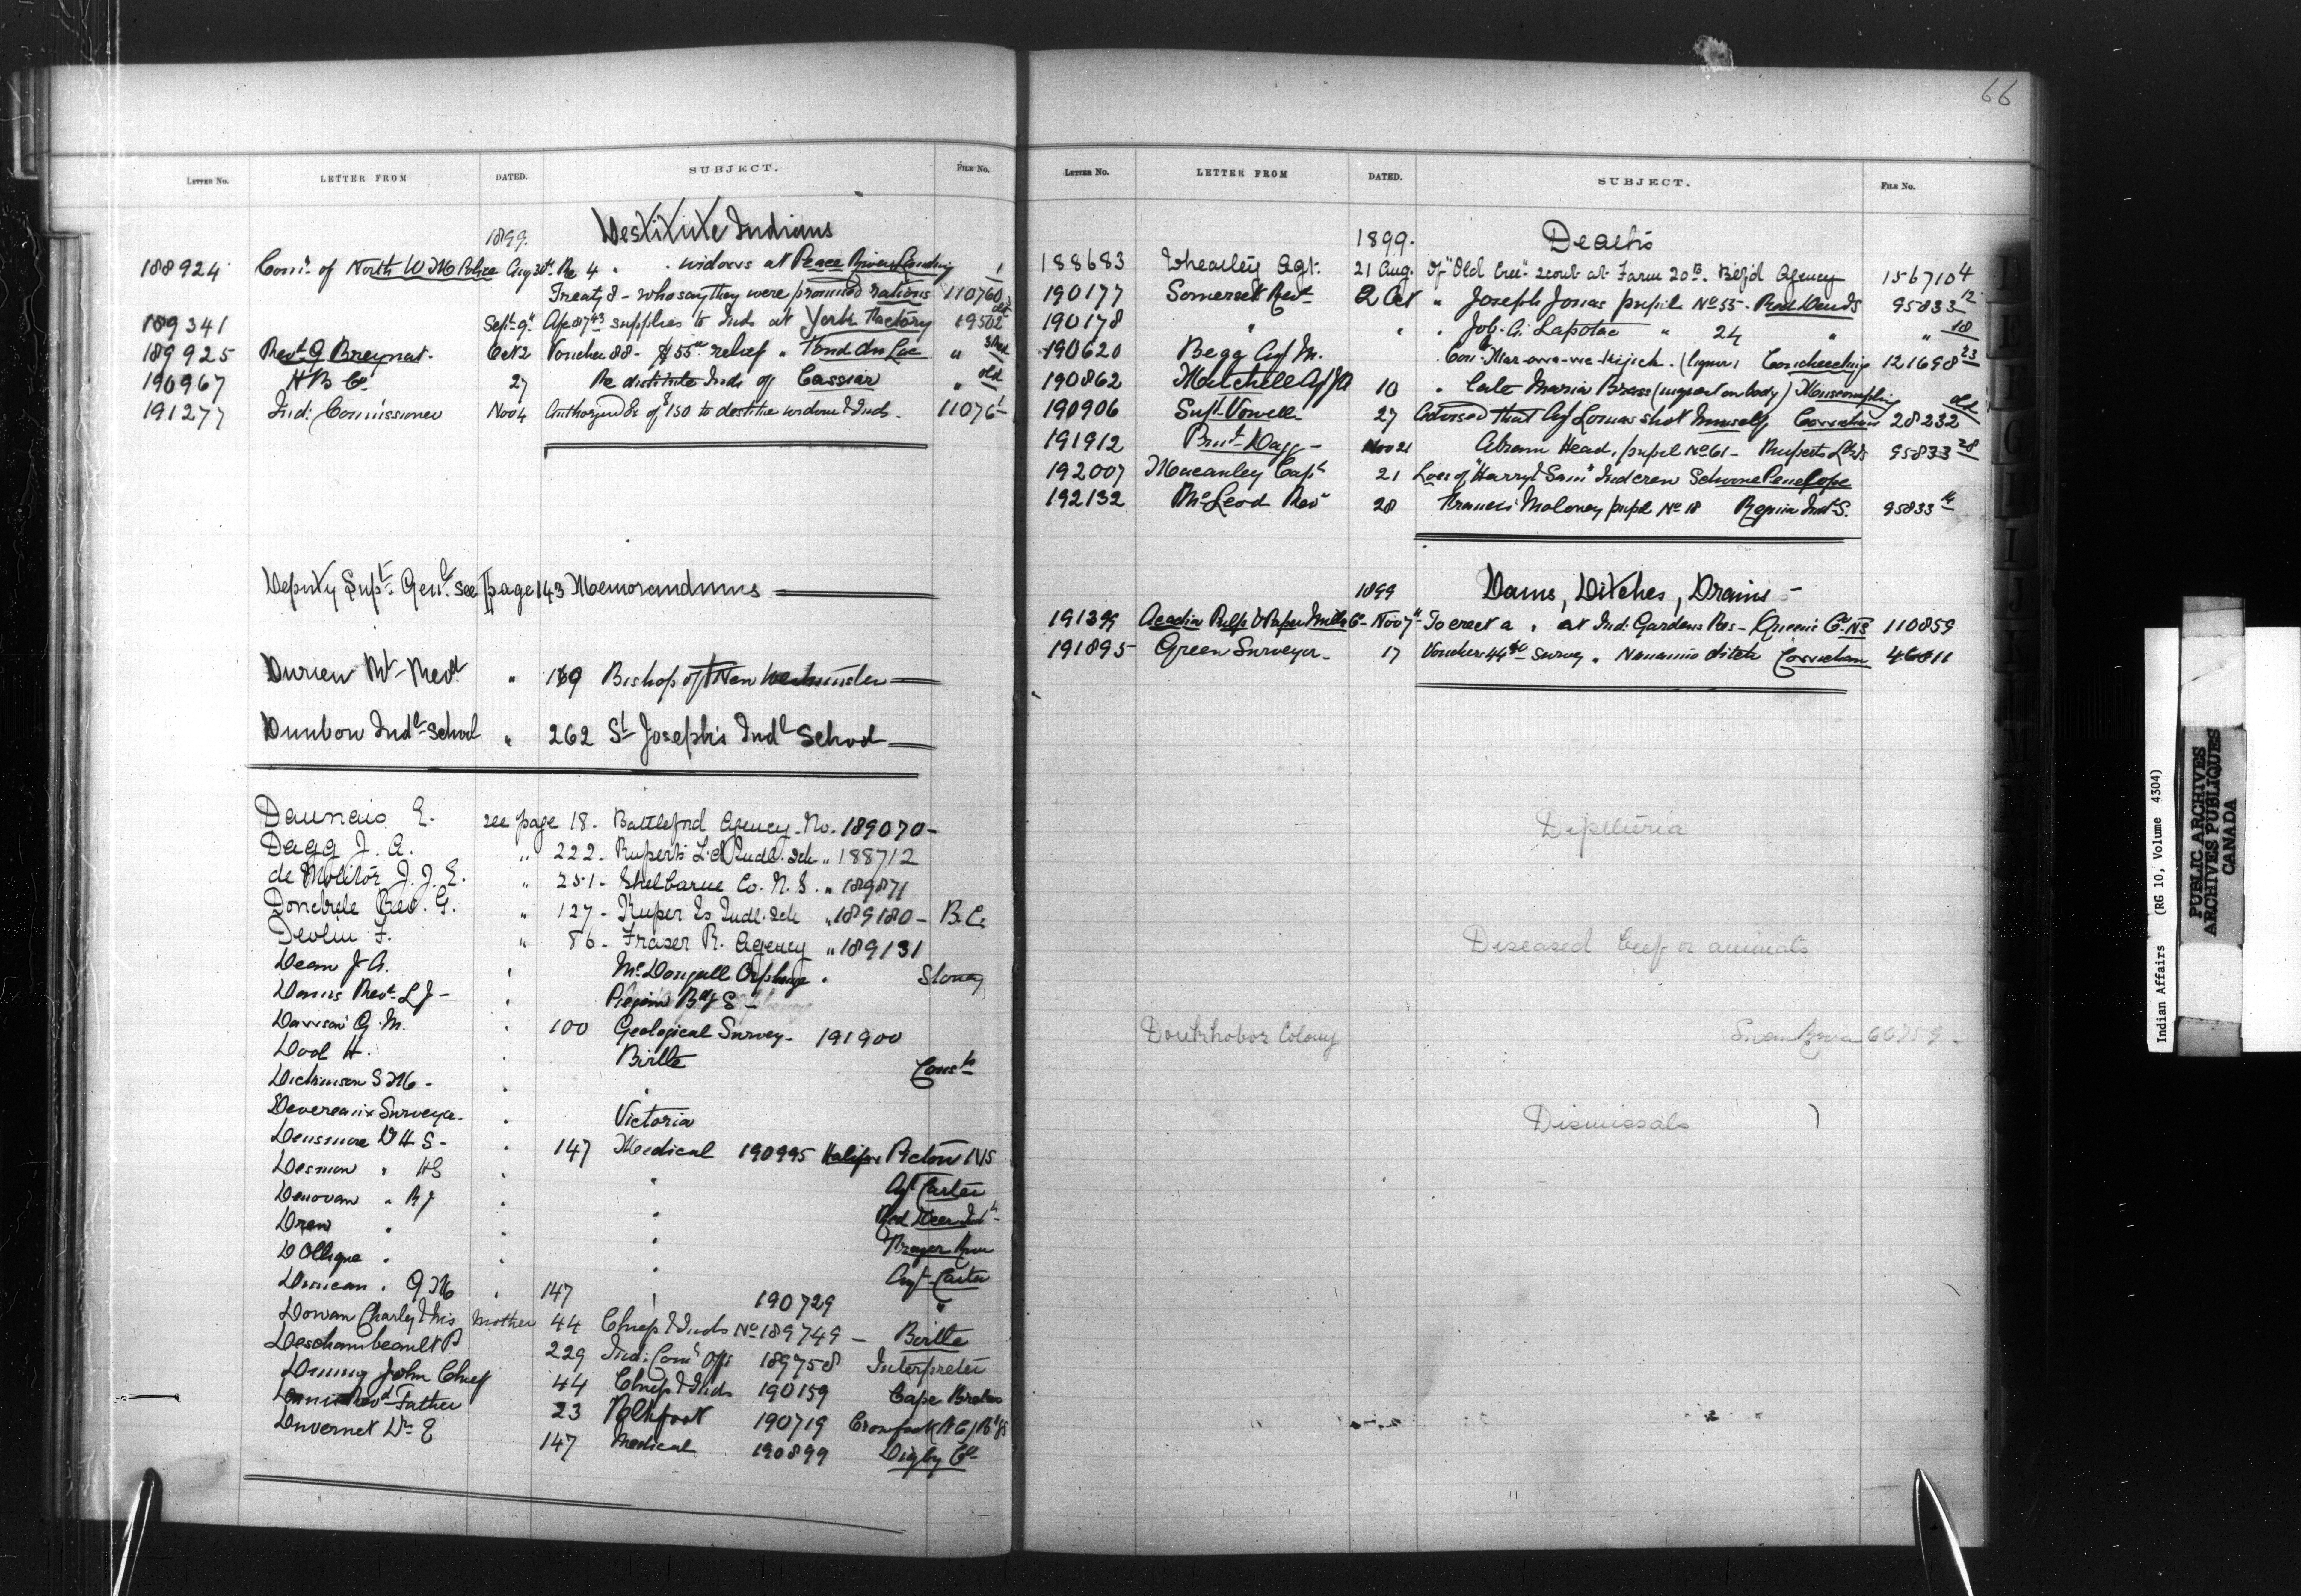 LETTER No. LETTER FROM DATED. SUBJECT. FILE No.
1899. Destitute Indians
188924 Com'r of North W M Police Aug 30th Re 4 " . widows at Peace River Landing 1
Treaty 8 - who say they were promised rations 110760
189341 Sept. 9th supplies to Inds at York Factory 19502 old
189925 Revd G Breynat. Oct 2 Voucher 88- $55 relief " Fond du Lac "
190967 H B Co. 27 Re destitute Inds of Cassiar " old
191277 Ind: Commissioner Nov 4 Authorized Ex of $150 to destitute widow & Inds. 11076
Deputy Supt. Genl. see page 143 Memorandums
Durieu Mt- Revd " 169 Bishop of New Westminster
Dunbow Indl School " 262 St Joseph's Indl School
Daunais E. see page 18. Battleford Agency. No. 189070-
Dagg J. A. " 222. Rupert's Ld Indl. Sch " 188712
de Molitor J. J. E. " 251. Shelburne Co. N. S. " 189871
Donckele Rev. G. " 127 - Kuper Is Indl. Sch " 189180 - B.C.
Devlin F. " 86. Fraser R. Agency " 189131
Dean J A. " McDougall Orphange . Stoney
Revd. L J- " Piegan Bdg S
Dawson G. M. " 100 Geological Survey- 191900
Dodd H. " Birtle Consts
Dickinson S M - "
Devereaux Surveyor- " Victoria
Densmore D H S- " 147 Medical 190995 Halifax Pictou NS
" HS " " Agt Carter
Donovan " R J " " Red Deer Indl
Drew " " "
D " " " Agt Carter
Duncan . G M " 147 " 190729 "
Dowan Charley & his Mother 44 Chiefs & Inds No 189749 - Birtle
Deschambeault P 229 Ind: Com's Offi 189758 Interpreter
Denny John Chief 44 Chiefs & Inds 190159 Cape Breton
Revd Father 23 Blkfoot 190719 Crowfoot (RC) Bdg S
Duvernet Dr E 147 Medical 190899 Digby Co
66
LETTER No. LETTER FROM DATED. SUBJECT. FILE No.
1899. Deaths
188683 Wheatley Agt. 21 Aug. Of "Old Cree" scout at Farm 20B. Blkfd Agency 156710 4
190177 Somerset Revd 2 Oct " Joseph Jonas pupil No 55- Red Deer IS 95833 12
190178 " " " Job. A. Lapotac " 24 " " 18
190620 Begg Agt M. (liquor) Couchiching 121698 23
190862 Mitchell Agt J A 10 " late Maria Brass (inquest on body) Moosomin
190906 Supt. Vowell 27 Advised that Agt Lomas shot himself Cowichan 28232 old
191912 Prin'l- Dagg - Nov 21 Abram Head, pupil No 61 - Ruperts Ld IS 95833 28
192007 Macaulay Capt 21 Loss of "Harry & Sam" Ind crew Schooner Penelope
192132 McLeod Rev 28 Francis Moloney pupil No 18 Regina Indl S. 95833
1899 Dams, Ditches, Drains -
191399 Acadia Pulp & Paper Mills Co- Nov 7th To erect a . at Ind: Gardens Res - Queen's Co. NS 110859
191895 Green Surveyor- 17 Voucher 44 survey " Nanaimo ditch Cowichan 46811
Diphtheria
Diseased beef or animals
Doukhobor Colony Swan River 60759.
Dismissals
Indian Affairs (RG 10, Volume 4304)
PUBLIC ARCHIVES
ARCHIVES PUBLIQUES
CANADA